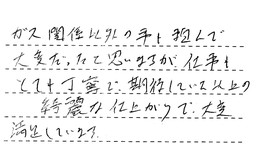 ガス関係以外の事も掴んで
大変だったと思いますが、仕事も
とても丁寧で、期待している以上の
綺麗な仕上がりで、大変
満足しています。